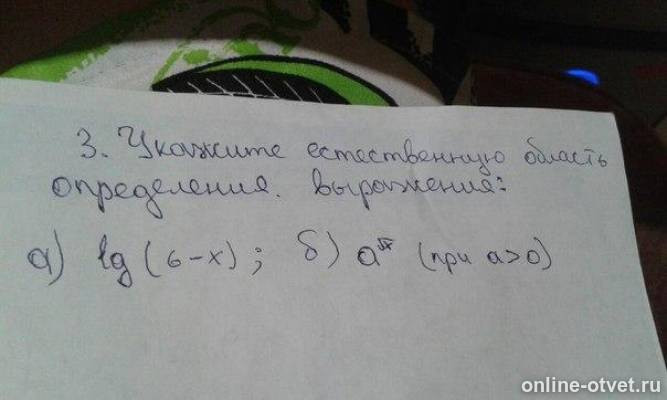 3. Укажите естественную область
определения. выражения:
а) lg (6-x); б) a^√x (при a>0)
online-otvet.ru